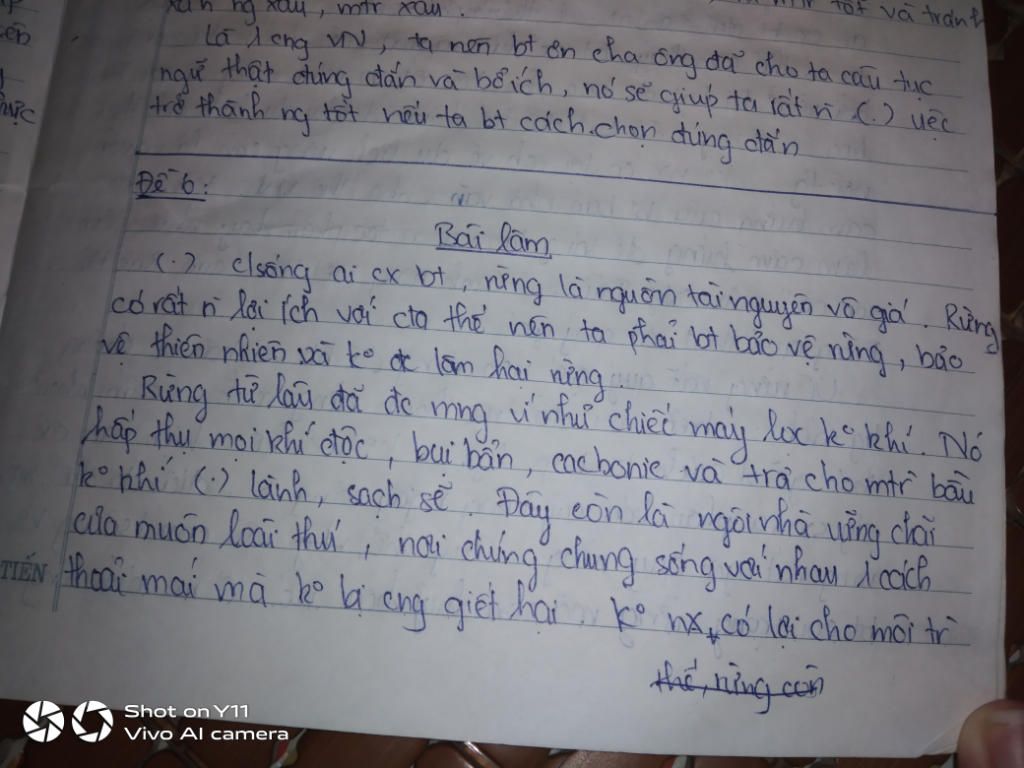 xấu, mtr xấu.
tốt và tránh
Là 1 cng VN, ta nên bt ơn cha ông đã cho ta câu tục
ngữ thật đúng đắn và bổ ích, nó sẽ giúp ta rất n (.) vệc
trở thành ng tốt nếu ta bt cách chọn đúng đắn
Đề 6:
Bài làm
(.) c/sống ai cx bt, rừng là nguồn tài nguyên vô giá. Rừng
có rất n lợi ích với cta thế nên ta phải bt bảo vệ rừng, bảo
vệ thiên nhiên và ko đc làm hại rừng
Rừng từ lâu đã đc mng ví như chiếc máy lọc ko khí. Nó
hấp thụ mọi khí độc, bụi bẩn, cacbonic và trả cho mtr bầu
ko khí (.) lành, sạch sẽ. Đây còn là ngôi nhà vững chãi
của muôn loài thú, nơi chúng chung sống với nhau 1 cách
TIẾN
thoải mái mà ko bị cng giết hại. ko nx, có lợi cho môi tr
thế, rừng còn
Shot on Y11
Vivo AI camera